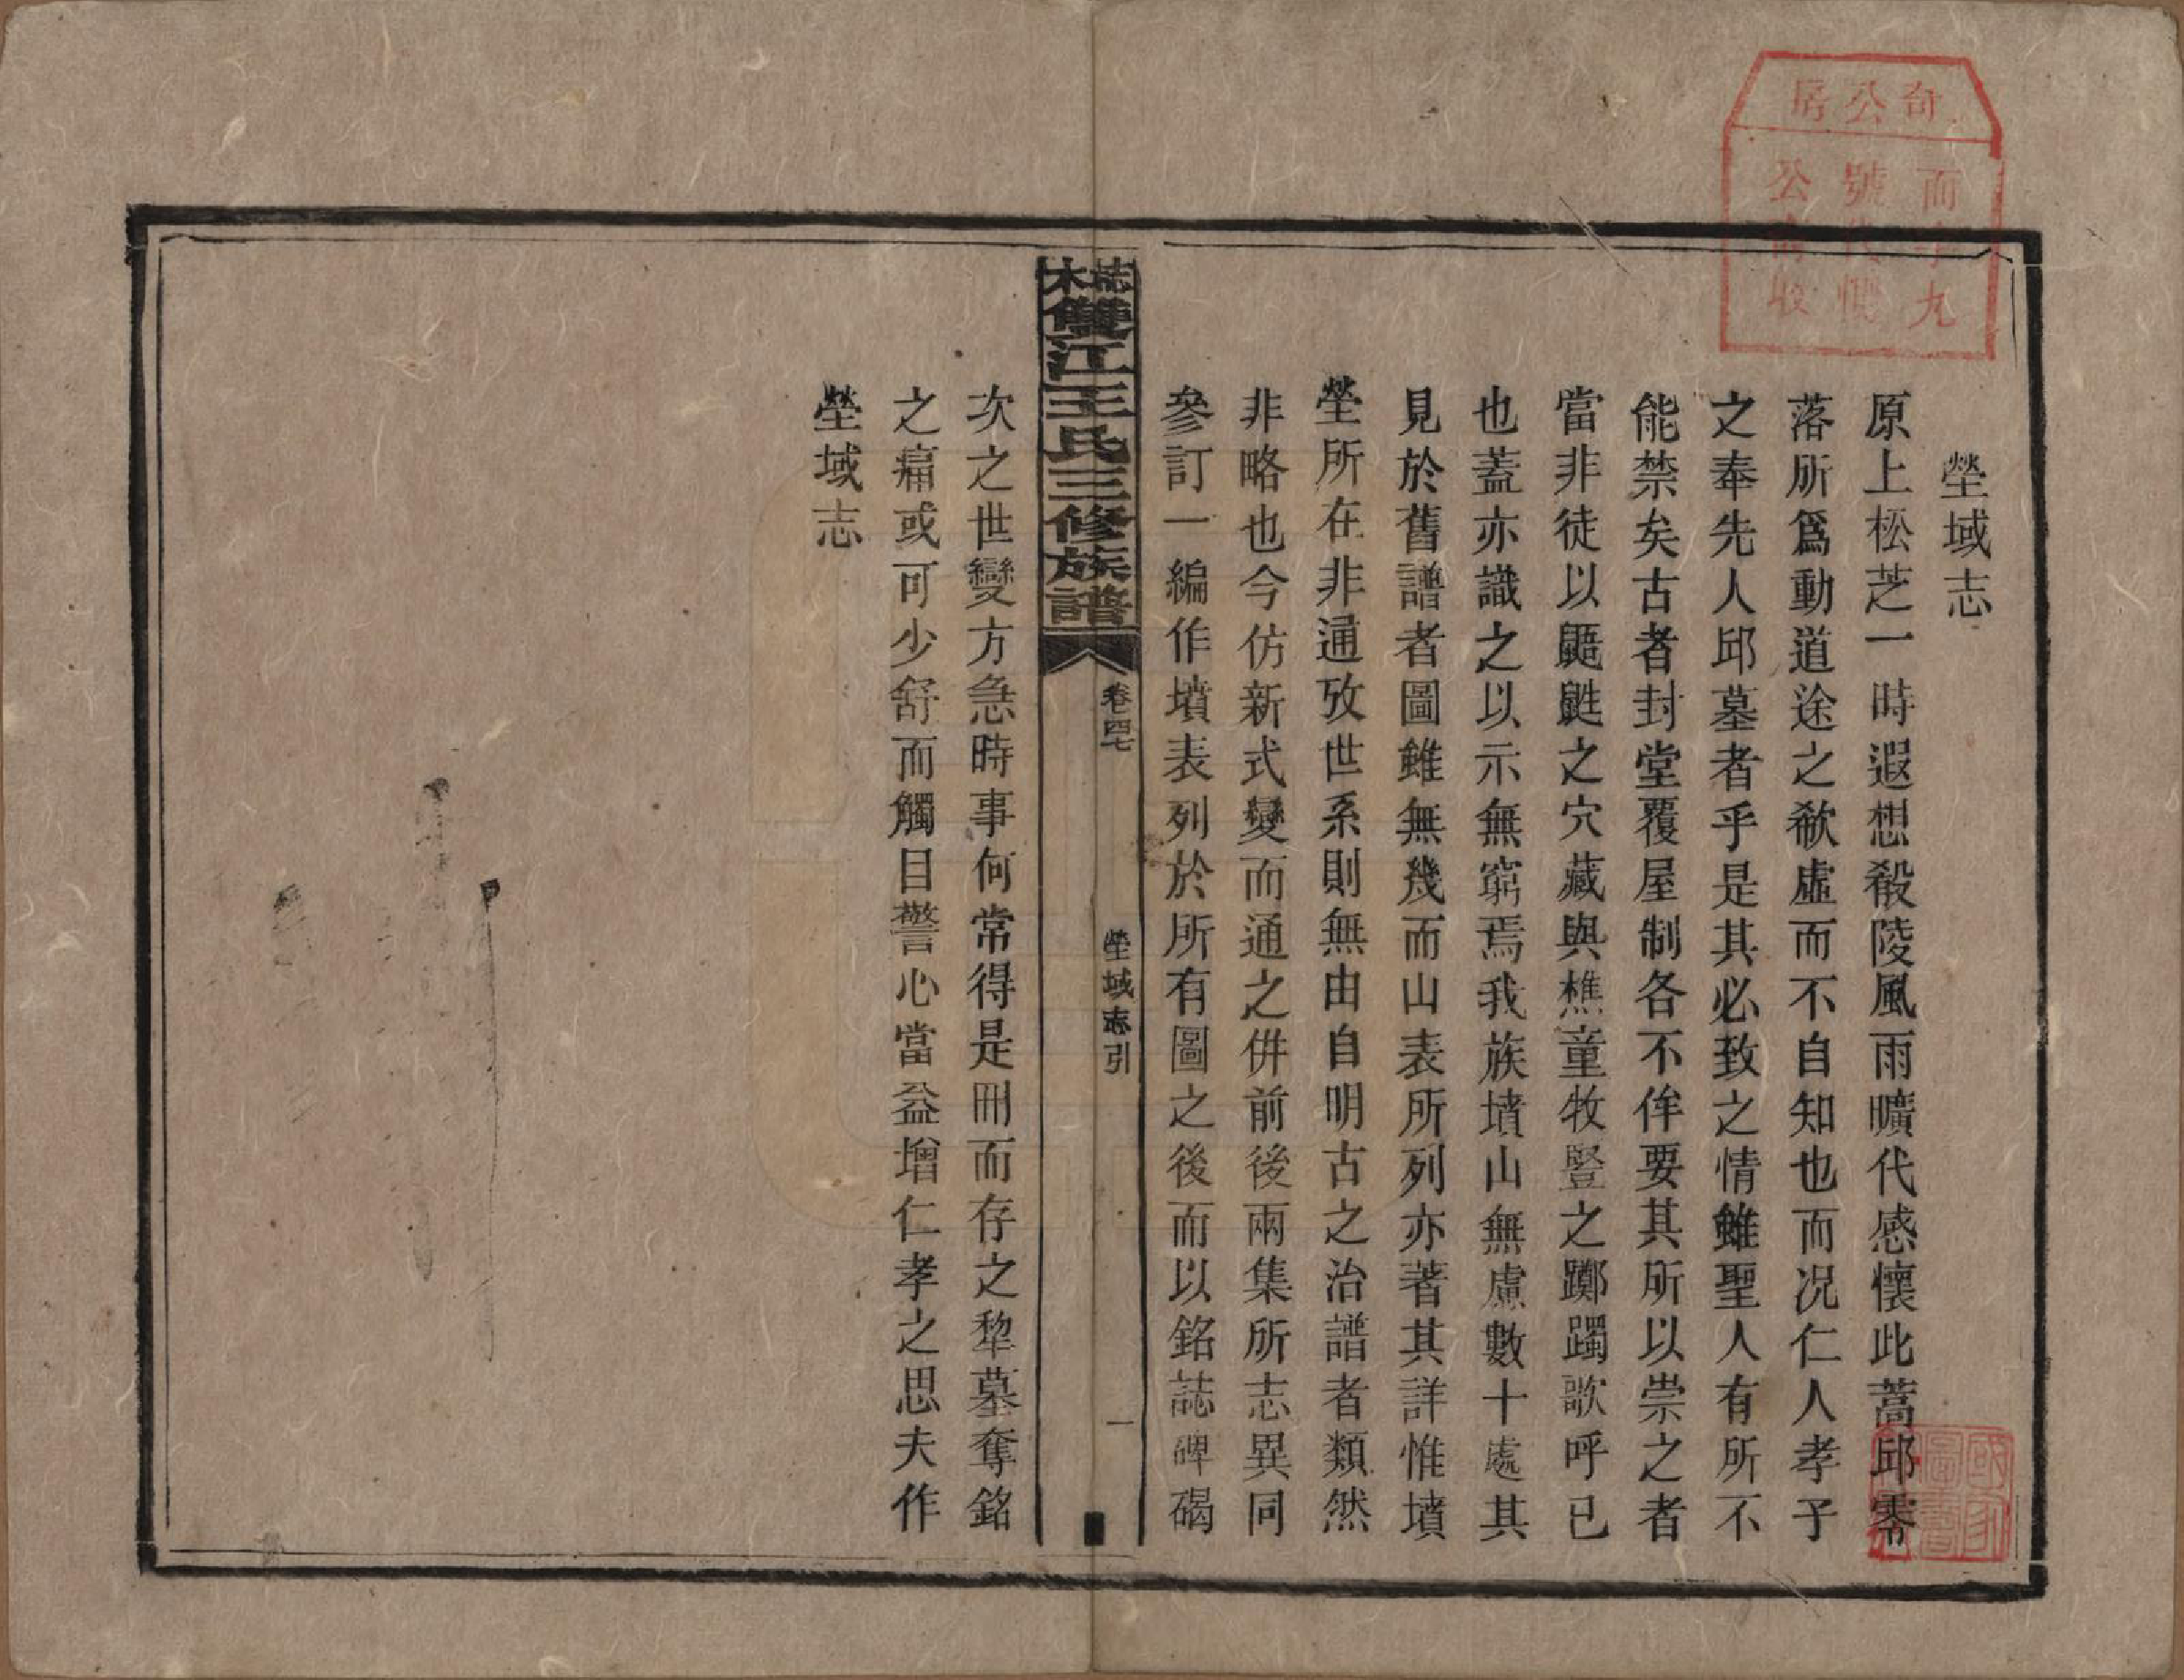 塋域志
原上松芝一時遐想殽陵風雨曠代感懷此蒿邱零
落所爲動道途之欷虛而不自知也而况仁人孝子
之奉先人邱墓者乎是其必致之情雖聖人有所不
能禁矣古者封堂覆屋制各不侔要其所以崇之者
當非徒以鼯鼪之穴藏與樵童牧豎之躑躅歌呼已
也蓋亦識之以示無窮焉我族墳山無慮數十處其
見於舊譜者圖雖無幾而山表所列亦著其詳惟墳
塋所在非通攷世系則無由自明古之治譜者類然
非略也今仿新式變而通之併前後兩集所志異同
參訂一編作墳表列於所有圖之後而以銘誌碑碣
誌木
雙江王氏三修族譜
卷四七
塋域志引
一
次之世變方急時事何常得是冊而存之犂墓奪銘
之痛或可少舒而觸目警心當益增仁孝之思夫作
塋域志
奇公房
而字九
號
公 收
國家
圖書